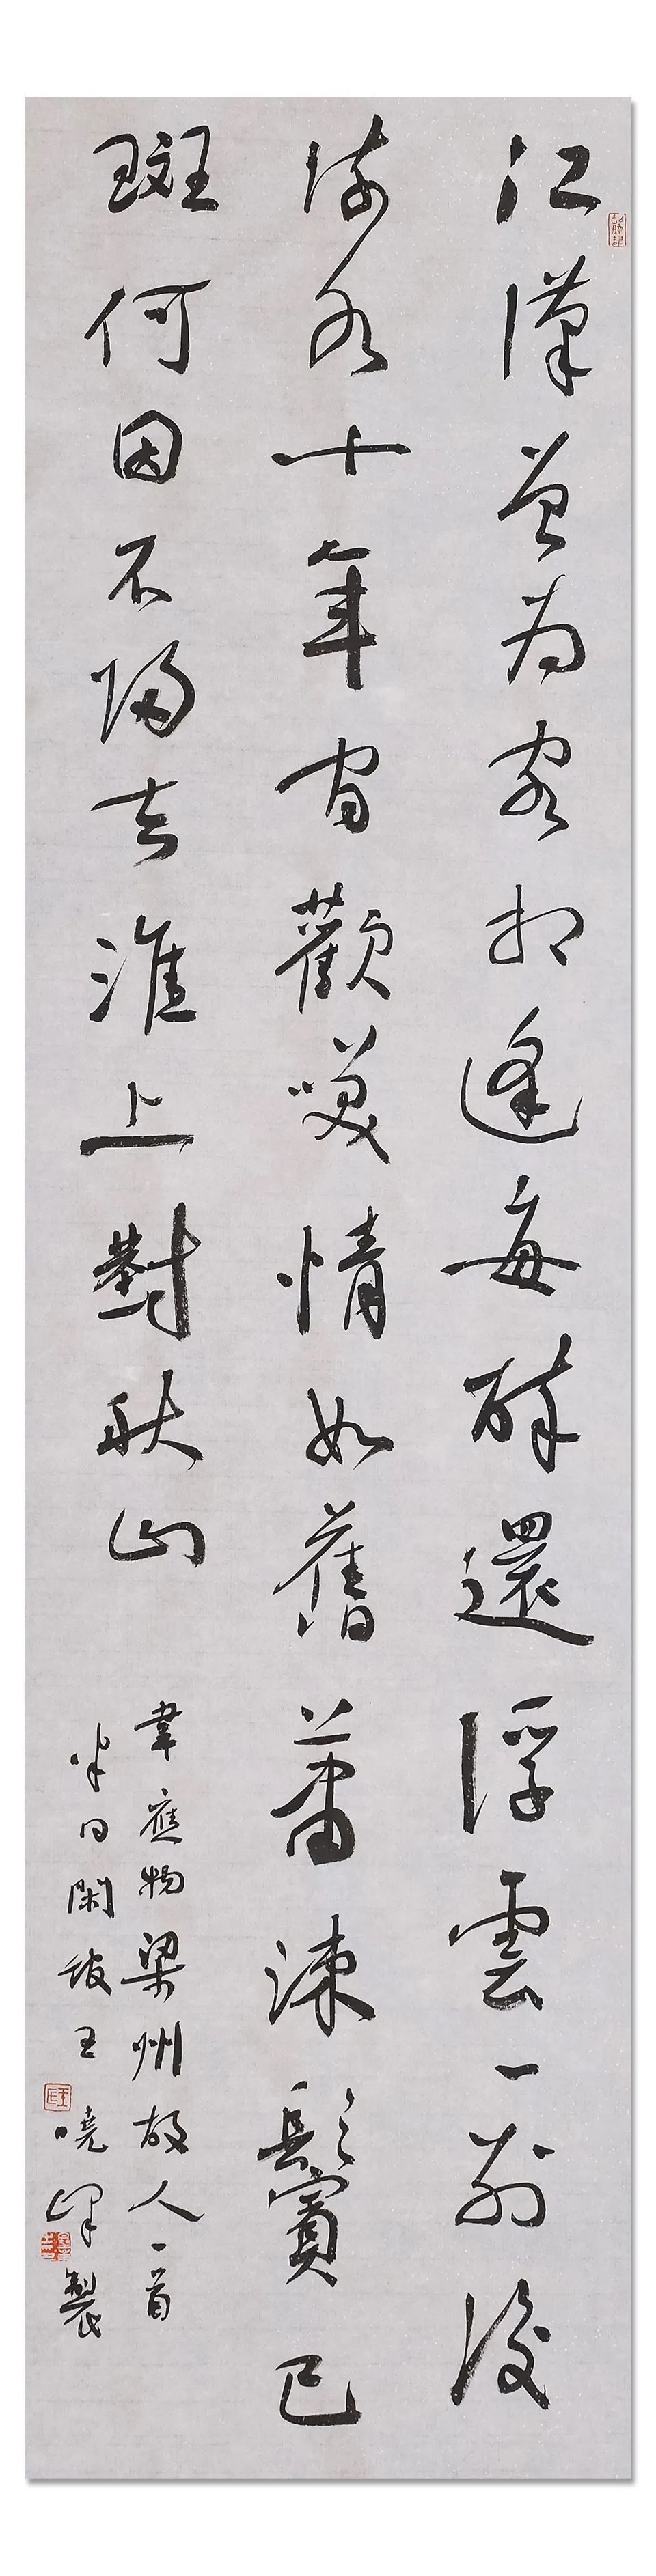 江漢曾為客相逢每醉還浮雲一別後
流水十年間歡笑情如舊蕭疎鬢已
斑何因不歸去淮上對秋山
韋應物梁州故人一首
半日閑王曉製